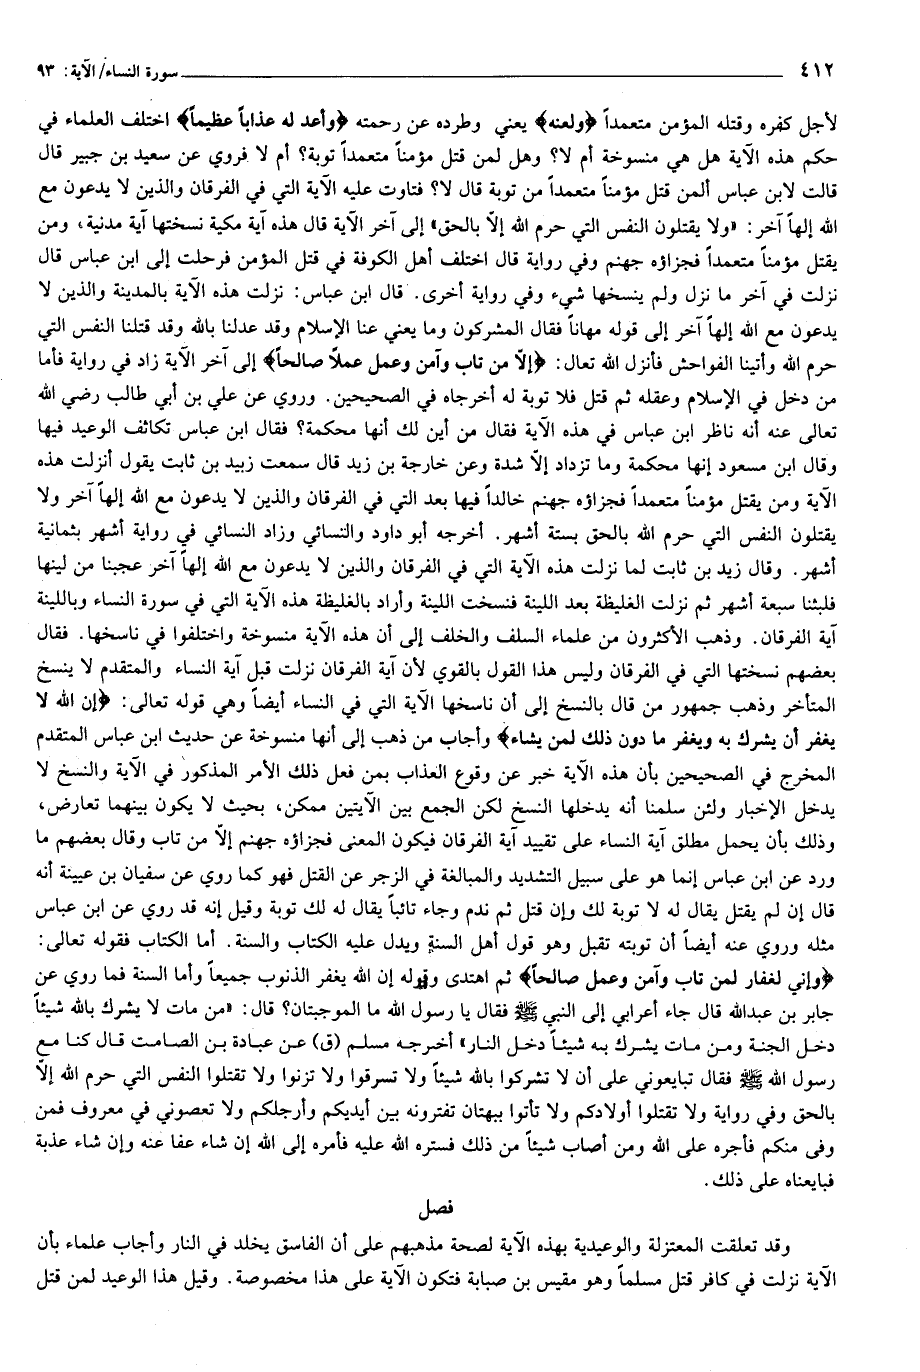 ٤١٢ سورة النساء/ الآية: ٩٣
لأجل كفره وقتله المؤمن متعمداً ﴿ولعنه﴾ يعني وطرده عن رحمته ﴿وأعد له عذاباً عظيماً﴾ اختلف العلماء في
حكم هذه الآية هل هي منسوخة أم لا؟ وهل لمن قتل مؤمناً متعمداً توبة؟ أم لا فروي عن سعيد بن جبير قال
قالت لابن عباس ألمن قتل مؤمناً متعمداً من توبة قال لا؟ فتاوت عليه الآية التي في الفرقان والذين لا يدعون مع
الله إلهاً آخر: «ولا يقتلون النفس التي حرم الله إلاّ بالحق» إلى آخر الآية قال هذه آية مكية نسختها آية مدنية، ومن
يقتل مؤمناً متعمداً فجزاؤه جهنم وفي رواية قال اختلف أهل الكوفة في قتل المؤمن فرحلت إلى ابن عباس قال
نزلت في آخر ما نزل ولم ينسخها شيء وفي رواية أخرى. قال ابن عباس: نزلت هذه الآية بالمدينة والذين لا
يدعون مع الله إلهاً آخر إلى قوله مهاناً فقال المشركون وما يعني عنا الإسلام وقد عدلنا بالله وقد قتلنا النفس التي
حرم الله وأتينا الفواحش فأنزل الله تعال: ﴿إلاّ من تاب وآمن وعمل عملاً صالحاً﴾ إلى آخر الآية زاد في رواية فأما
من دخل في الإسلام وعقله ثم قتل فلا توبة له أخرجاه في الصحيحين. وروي عن علي بن أبي طالب رضي الله
تعالى عنه أنه ناظر ابن عباس في هذه الآية فقال من أين لك أنها محكمة؟ فقال ابن عباس تكاثف الوعيد فيها
وقال ابن مسعود إنها محكمة وما تزداد إلاّ شدة وعن خارجة بن زيد قال سمعت زبيد بن ثابت يقول أنزلت هذه
الآية ومن يقتل مؤمناً متعمداً فجزاؤه جهنم خالداً فيها بعد التي في الفرقان والذين لا يدعون مع الله إلهاً آخر ولا
يقتلون النفس التي حرم الله بالحق بستة أشهر. أخرجه أبو داود والنسائي وزاد النسائي في رواية أشهر بثمانية
أشهر. وقال زيد بن ثابت لما نزلت هذه الآية التي في الفرقان والذين لا يدعون مع الله إلهاً آخر عجبنا من لينها
فلبثنا سبعة أشهر ثم نزلت الغليظة بعد اللينة فنسخت اللينة وأراد بالغليظة هذه الآية التي في سورة النساء وباللينة
آية الفرقان. وذهب الأكثرون من علماء السلف والخلف إلى أن هذه الآية منسوخة واختلفوا في ناسخها. فقال
بعضهم نسختها التي في الفرقان وليس هذا القول بالقوي لأن آية الفرقان نزلت قبل آية النساء والمتقدم لا ينسخ
المتأخر وذهب جمهور من قال بالنسخ إلى أن ناسخها الآية التي في النساء أيضاً وهي قوله تعالى: ﴿إن الله لا
يغفر أن يشرك به ويغفر ما دون ذلك لمن يشاء﴾ وأجاب من ذهب إلى أنها منسوخة عن حديث ابن عباس المتقدم
المخرج في الصحيحين بأن هذه الآية خبر عن وقوع العذاب بمن فعل ذلك الأمر المذكور في الآية والنسخ لا
يدخل الإخبار ولئن سلمنا أنه يدخلها النسخ لكن الجمع بين الآيتين ممكن، بحيث لا يكون بينهما تعارض،
وذلك بأن يحمل مطلق آية النساء على تقييد آية الفرقان فيكون المعنى فجزاؤه جهنم إلاّ من تاب وقال بعضهم ما
ورد عن ابن عباس إنما هو على سبيل التشديد والمبالغة في الزجر عن القتل فهو كما روي عن سفيان بن عيينة أنه
قال إن لم يقتل يقال له لا توبة لك وإن قتل ثم ندم وجاء تائباً يقال له لك توبة وقيل إنه قد روي عن ابن عباس
مثله وروي عنه أيضاً أن توبته تقبل وهو قول أهل السنة ويدل عليه الكتاب والسنة. أما الكتاب فقوله تعالى:
﴿وإني لغفار لمن تاب وآمن وعمل صالحاً﴾ ثم اهتدى وقوله إن الله يغفر الذنوب جميعاً وأما السنة فما روي عن
جابر بن عبدالله قال جاء أعرابي إلى النبي ﷺ فقال يا رسول الله ما الموجبتان؟ قال: «من مات لا يشرك بالله شيئاً
دخل الجنة ومن مات يشرك به شيئاً دخل النار» أخرجه مسلم (ق) عن عبادة بن الصامت قال كنا مع
رسول الله ﷺ فقال تبايعوني على أن لا تشركوا بالله شيئاً ولا تسرقوا ولا تزنوا ولا تقتلوا النفس التي حرم الله إلاّ
بالحق وفي رواية ولا تقتلوا أولادكم ولا تأتوا ببهتان تفترونه بين أيديكم وأرجلكم ولا تعصوني في معروف فمن
وفى منكم فأجره على الله ومن أصاب شيئاً من ذلك فستره الله عليه فأمره إلى الله إن شاء عفا عنه وإن شاء عذبة
فبايعناه على ذلك.
فصل
وقد تعلقت المعتزلة والوعيدية بهذه الآية لصحة مذهبهم على أن الفاسق يخلد في النار وأجاب علماء بأن
الآية نزلت في كافر قتل مسلماً وهو مقيس بن صبابة فتكون الآية على هذا مخصوصة. وقيل هذا الوعيد لمن قتل